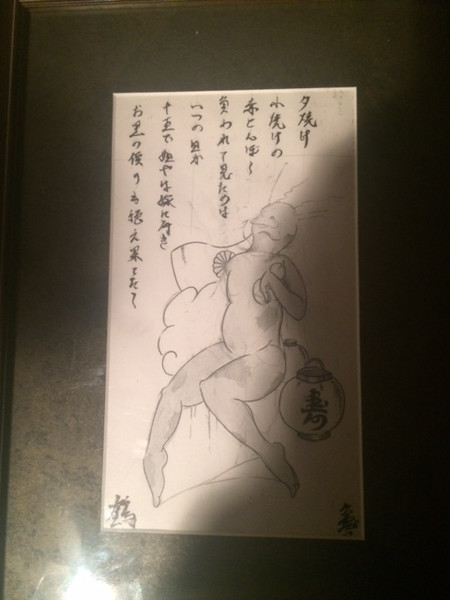 夕焼け
小焼けの
赤とんぼ
負われて見たのは
いつの日か
十五で姐やは嫁に行き
お里の便りも絶え果てた
寿
亀
鶴